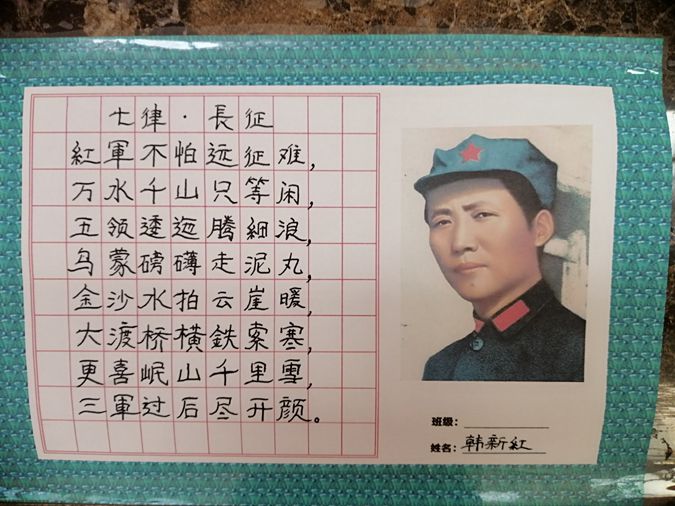 七律·長征
紅軍不怕远征难，
万水千山只等闲，
五领逶迤腾細浪，
乌蒙磅礴走泥丸，
金沙水拍云崖暖，
大渡桥横鉄索寒，
更喜岷山千里雪，
三軍过后尽开颜。
班级：
姓名：韩新紅